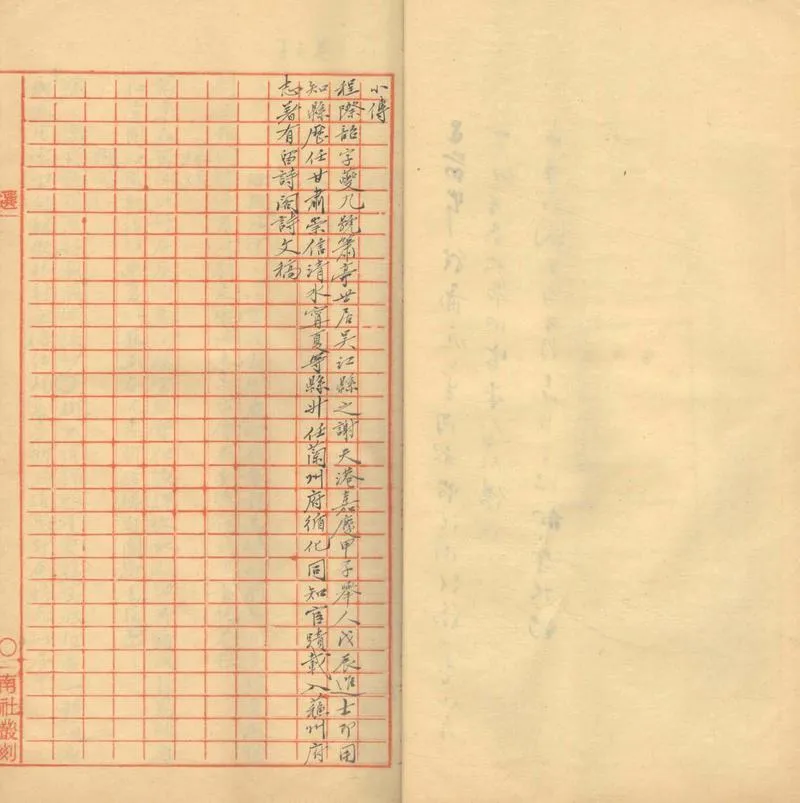 小傳
程際韶字夔九號簫亭世居吳江縣之謝天港嘉慶甲子舉人戊辰進士即用
知縣歷任甘肅崇信清水甯夏等縣升任蘭州府循化同知官蹟載入蘇州府
志著有留詩閣詩文稿
選
〇
南社叢刻